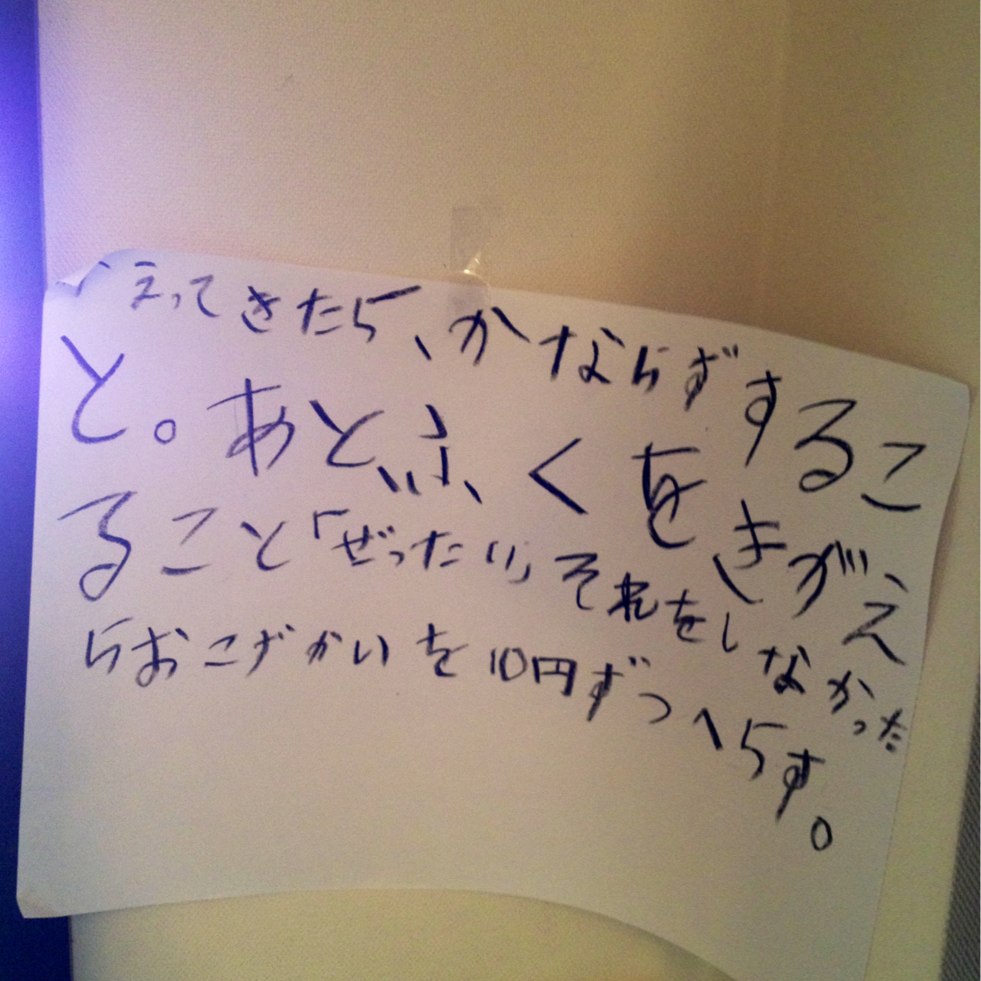 えってきたら、かならずするこ
と。あとふくをきがえ
ること「ぜったい」それをしなかった
らおこずかいを10円ずつへらす。